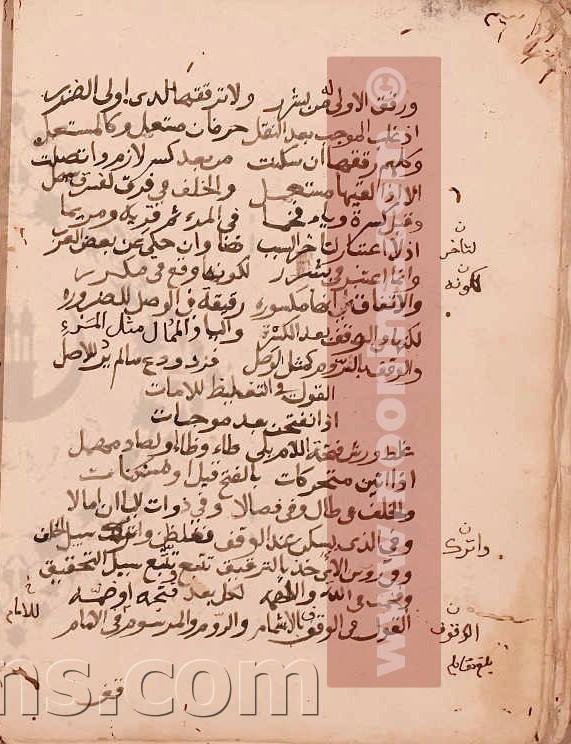 ورقق الاولى له من بشرر ولا ترققها لدى اولى الضرر
اذ غلب الموجب بعد النقل حرفان مستعل وكالمستعل
وكلهم رققها ان سكنت من بعد كسر لازم واتصلت
الا اذا لقيها مستعل والخلف في فرق لفرق سهل
وقبل كسرة وياء فخما في المرء ثم قرية ومريما
اذ لا اعتبار لتاخر السبب هنا وان حكي عن بعض العرب
وانما اعتبر في بشرر لكونه وقع في مكرر
والاتفاق انها مكسوره رقيقة في الوصل للضروره
لكنها في الوقف بعد الكسر والياء والممال مثل المرء
والوقف بالروم كمثل الوصل فرد ودع ما لم يرد للاصل
القول في التغليظ للامات
اذا انفتحن بعد موجبات
غلظ ورش فتحة اللام يلي طاء وظاء ولصاد مهمل
اذا اتين متحركات بالفتح قبل او مسكنات
والخلف في طال وفي فصالا وفي ذوات الياء ان امالا
وفي الذي يسكن عند الوقف فغلظن واترك سبيل الخلف
وفي رءوس الاي خذ بالترقيق تتبع وتتبع سبيل التحقيق
وفخمت في الله واللهمه للكل بعد فتحة او ضمه
القول في الوقوف بالاشمام والروم والمرسوم في الامام
لتاخر
لكونه
واترك
الوقوف
للامام
بلغ مقابلة
قف